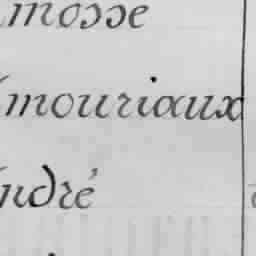 mosse
mouriaux
ndré